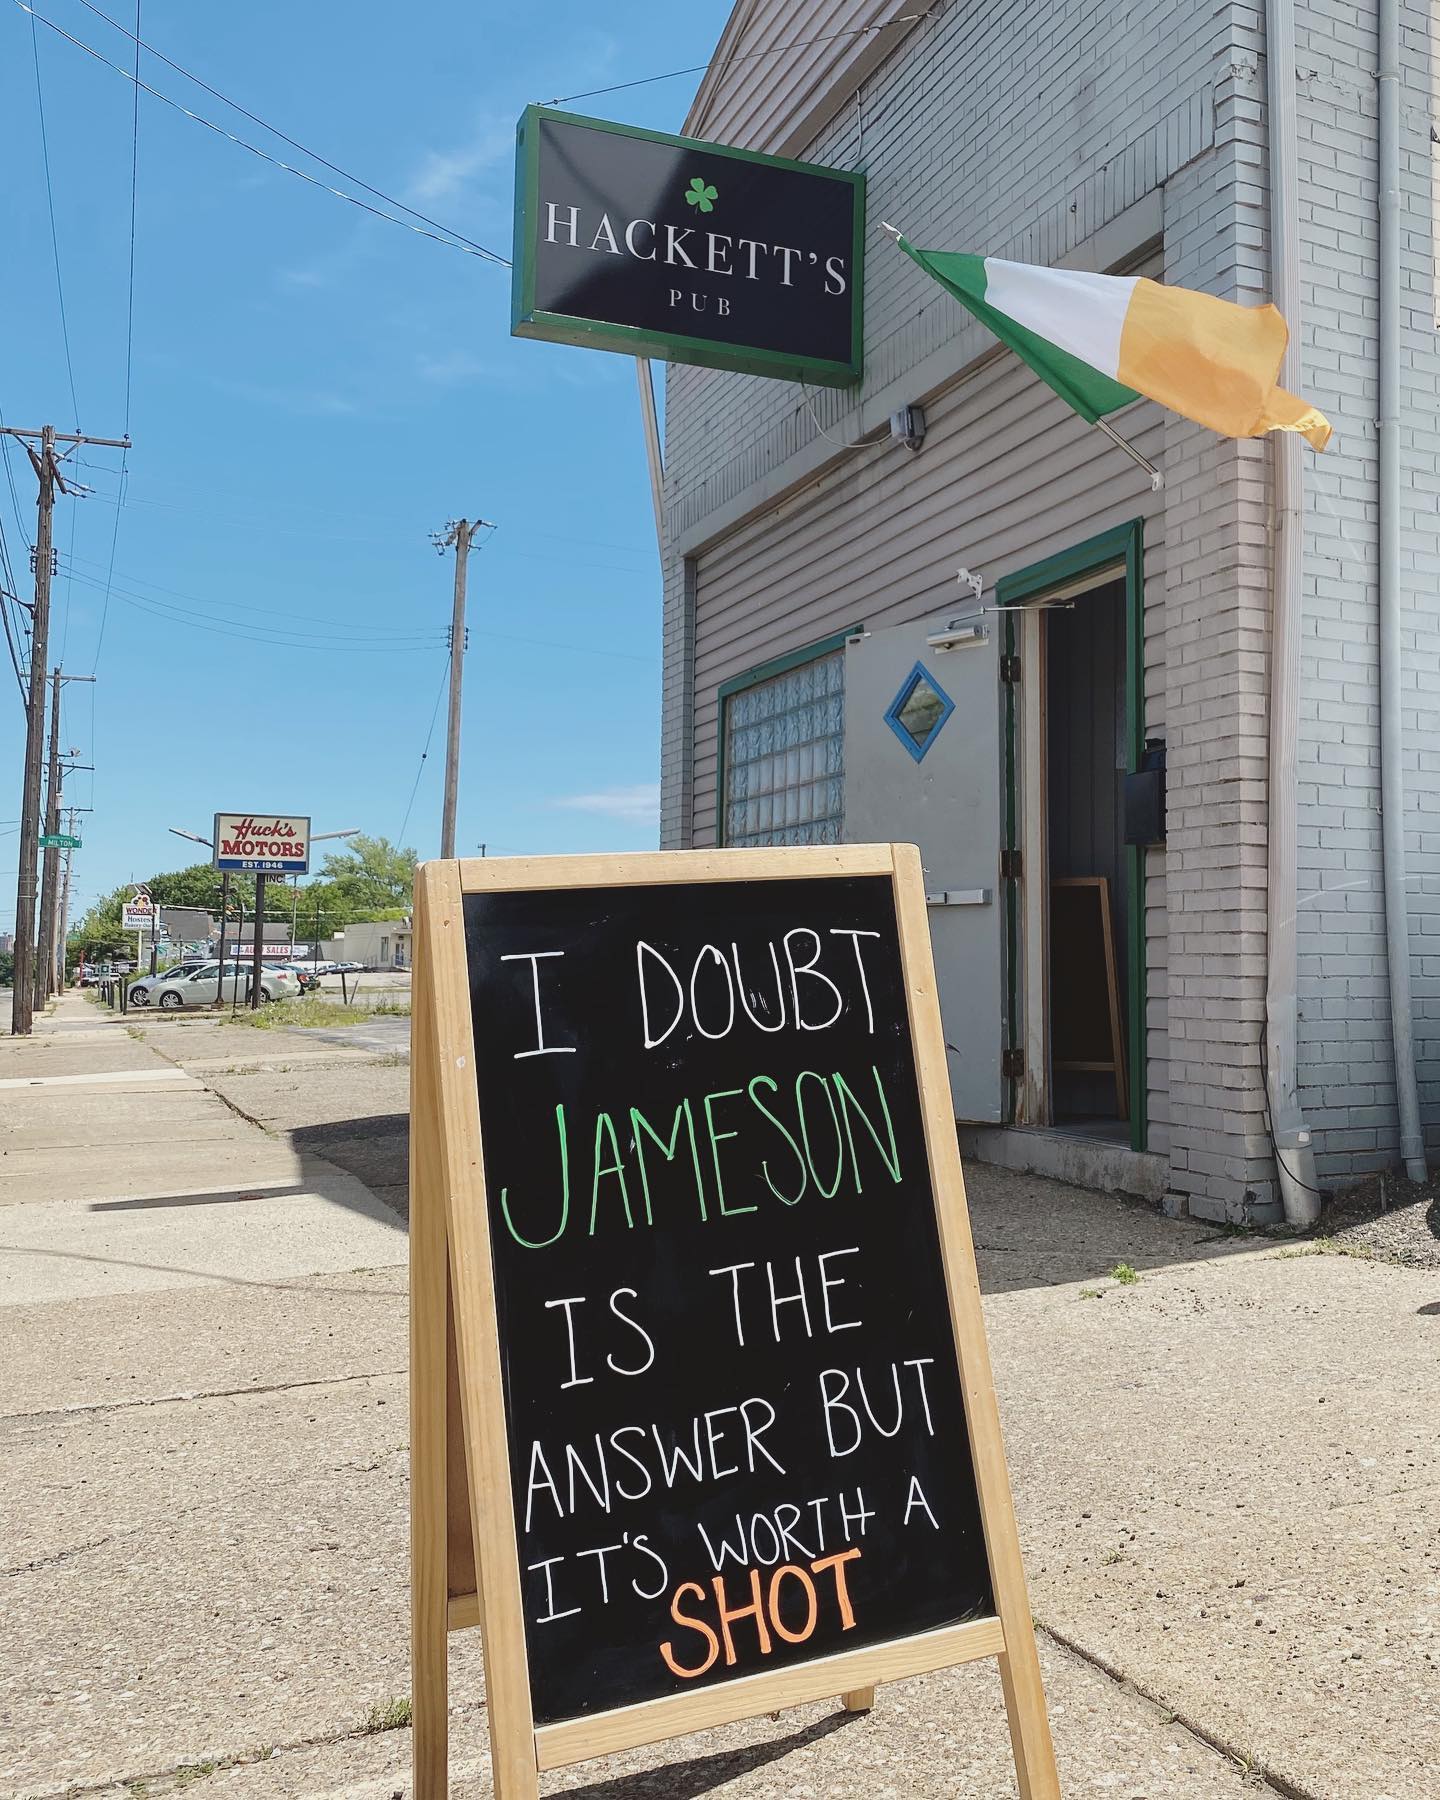 HACKETT'S
PUB
MILTON
Huck's
MOTORS
EST. 1946
INC
WONDER
Hostess
AUTO SALES
I DOUBT
JAMESON
IS THE
ANSWER BUT
IT'S WORTH A
SHOT